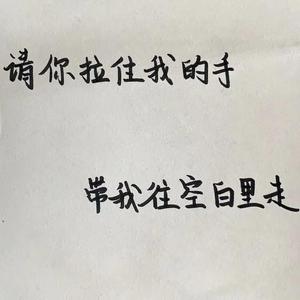 请你拉住我的手
带我往空白里走